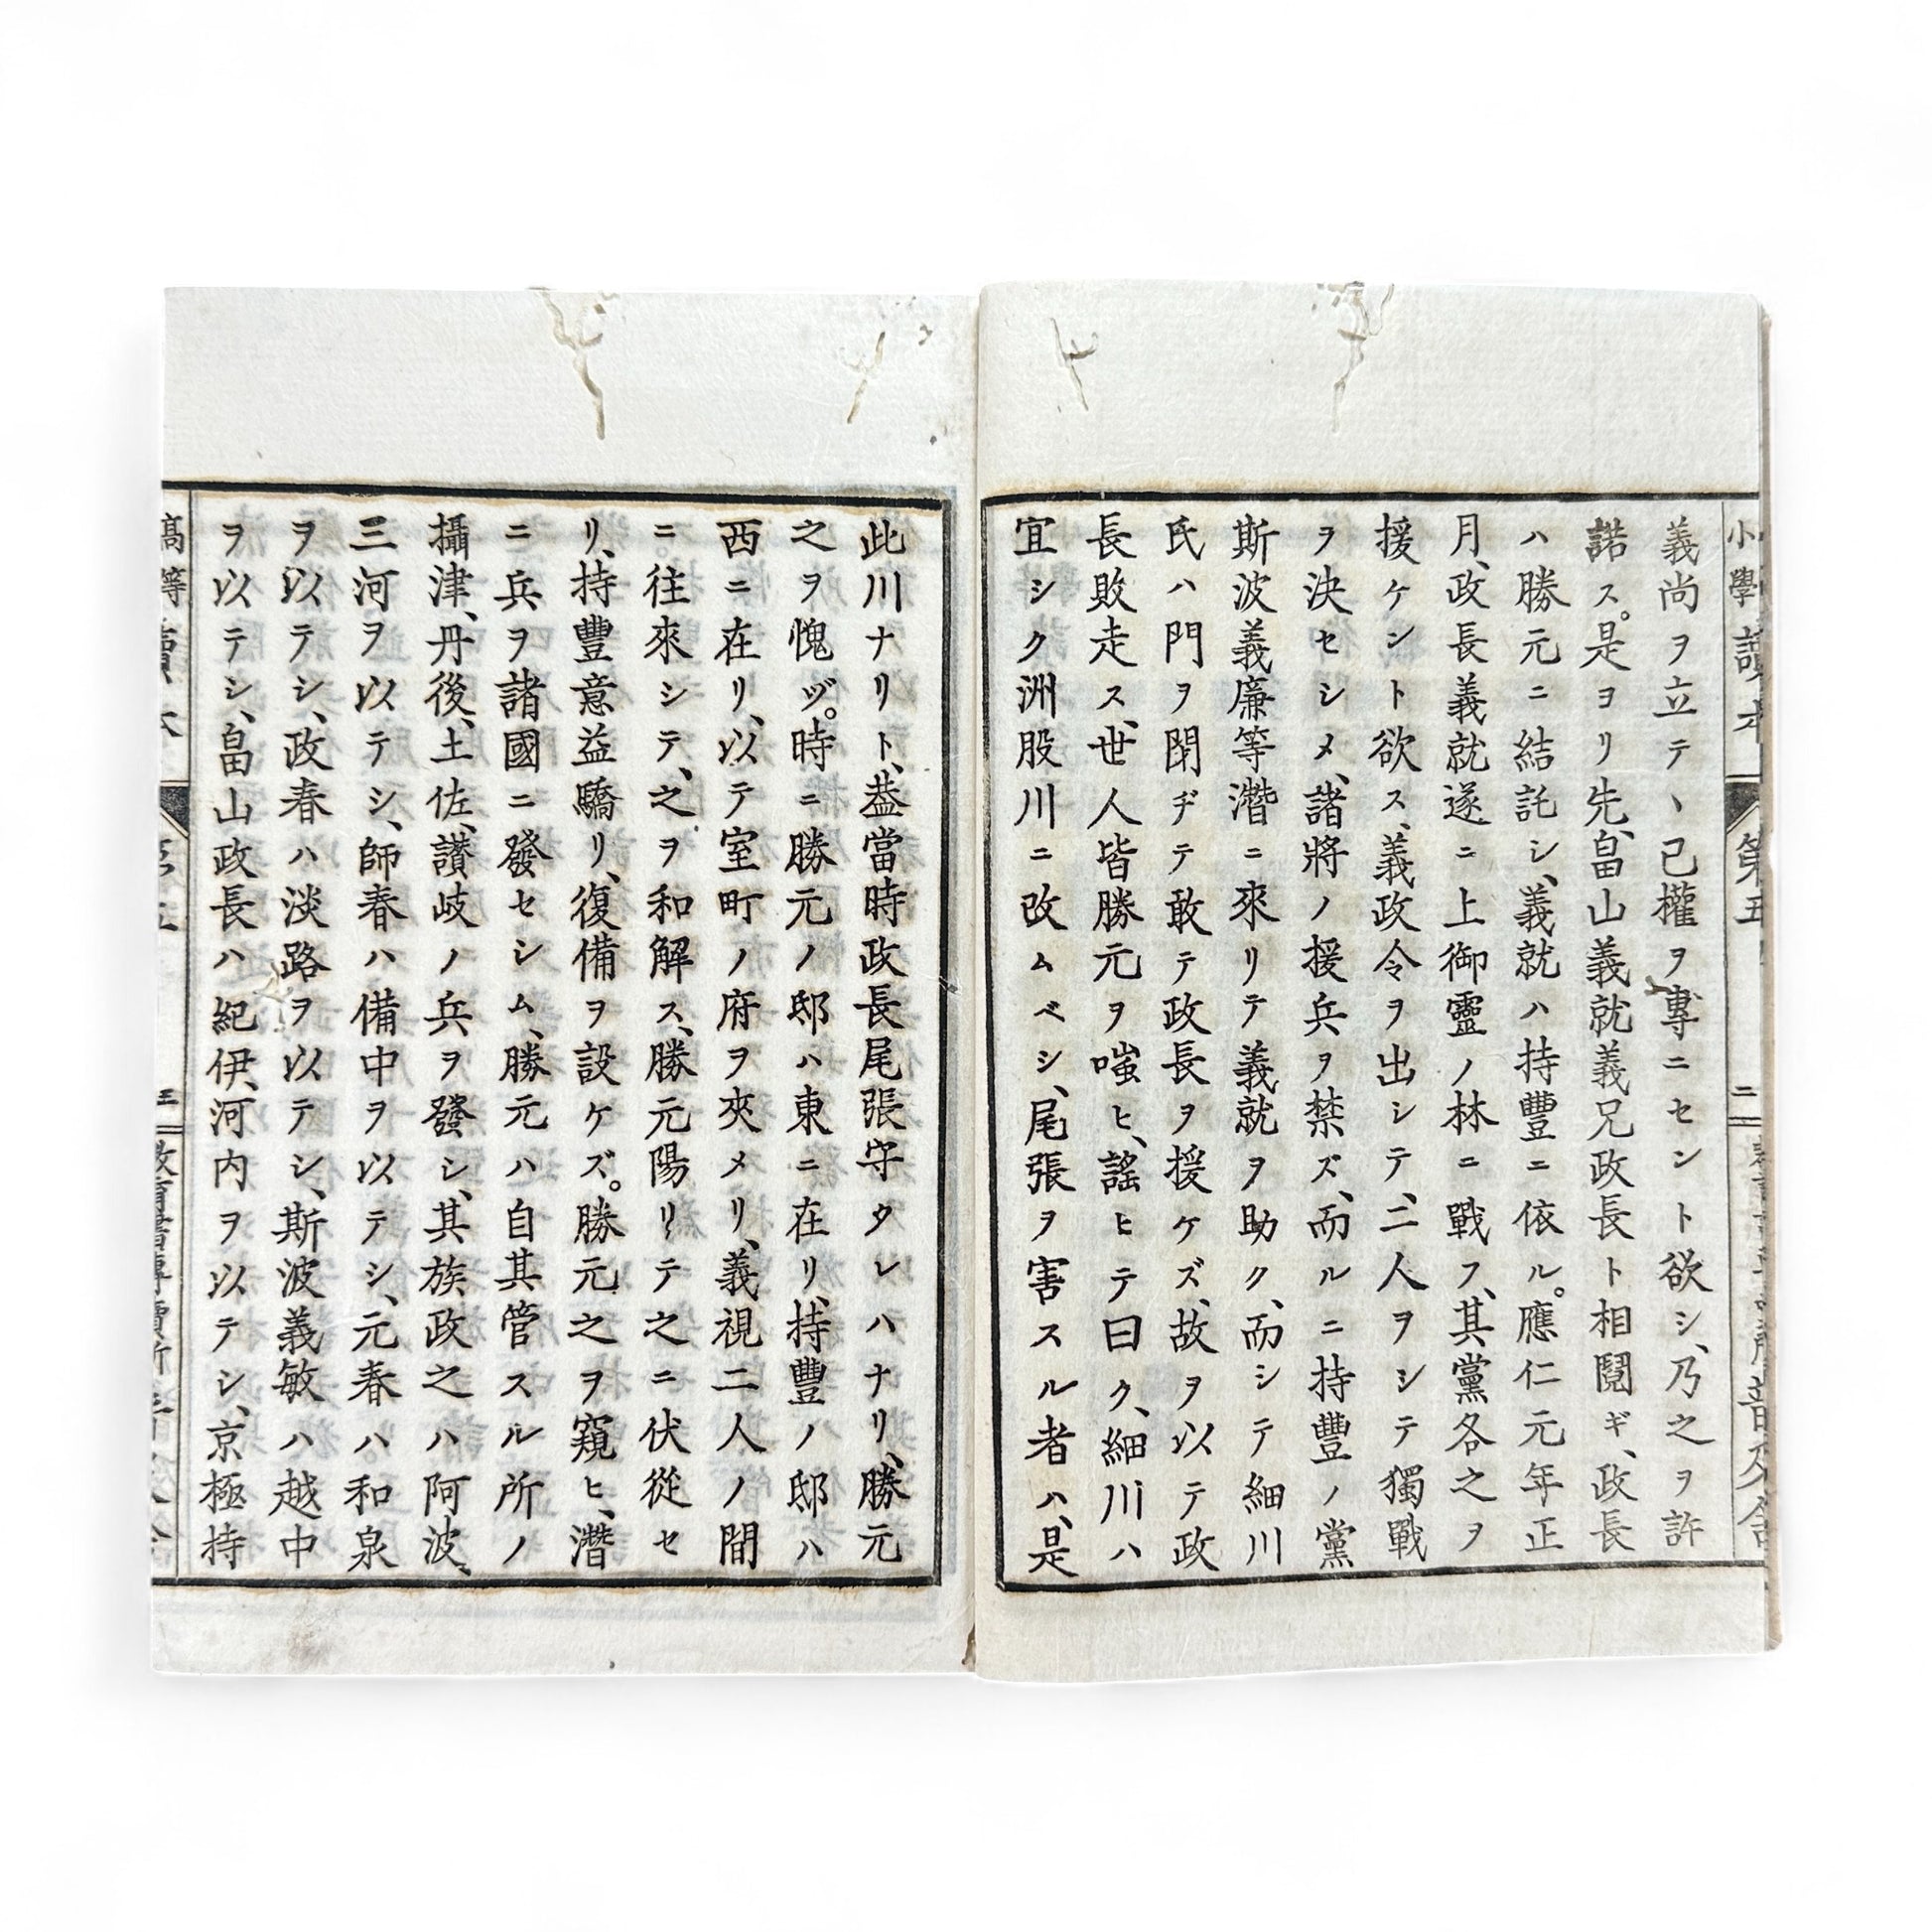 小學讀本
第五
二
義尚ヲ立テヽ己權ヲ專ニセント欲シ、乃之ヲ許
諾ス。是ヨリ先、畠山義就義兄政長ト相鬩ギ、政長
ハ勝元ニ結託シ、義就ハ持豐ニ依ル。應仁元年正
月、政長義就遂ニ上御靈ノ林ニ戰フ、其黨各之ヲ
援ケント欲ス、義政令ヲ出シテ、二人ヲシテ獨戰
ヲ決セシメ、諸將ノ援兵ヲ禁ズ、而ルニ持豐ノ黨
斯波義廉等潛ニ來リテ義就ヲ助ク、而シテ細川
氏ハ門ヲ閉ヂテ敢テ政長ヲ援ケズ、故ヲ以テ政
長敗走ス、世人皆勝元ヲ嗤ヒ、謠ヒテ曰ク、細川ハ
宜シク洲股川ニ改ムベシ、尾張ヲ害スル者ハ、是
此川ナリト、葢當時政長尾張守タレハナリ、勝元
之ヲ愧ヅ。時ニ勝元ノ邸ハ東ニ在リ、持豐ノ邸ハ
西ニ在リ、以テ室町ノ府ヲ夾メリ、義視二人ノ間
ニ往來シテ、之ヲ和解ス、勝元陽リテ之ニ伏從セ
リ、持豐意益驕リ、復備ヲ設ケズ。勝元之ヲ窺ヒ、潛
ニ兵ヲ諸國ニ發セシム、勝元ハ自其管スル所ノ
攝津、丹後、土佐、讃岐ノ兵ヲ發シ、其族政之ハ阿波、
三河ヲ以テシ、師春ハ備中ヲ以テシ、元春ハ和泉
ヲ以テシ、政春ハ淡路ヲ以テシ、斯波義敏ハ越中
ヲ以テシ、畠山政長ハ紀伊、河内ヲ以テシ、京極持
高等讀本
三